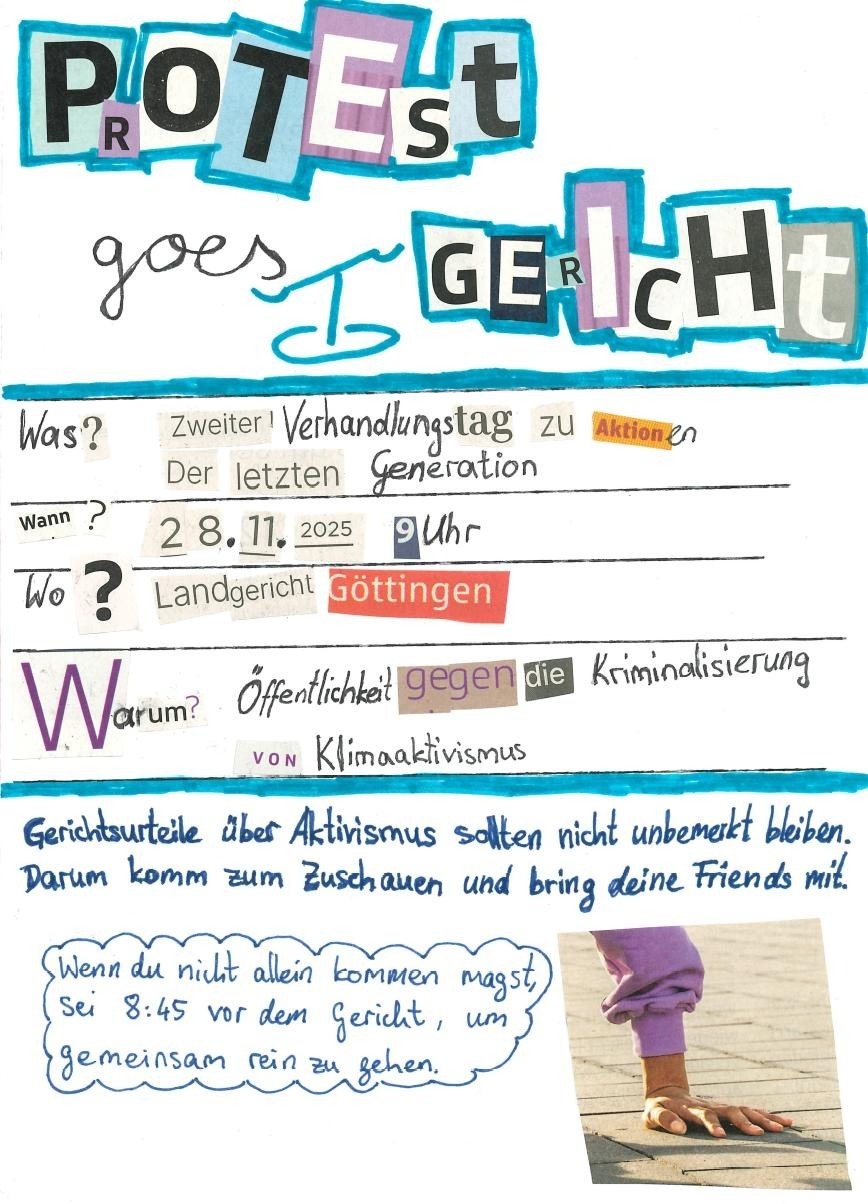 PROTESt
goes GERICHt
Was? Zweiter Verhandlungstag zu Aktionen
Der letzten Generation
Wann? 28.11.2025 9 Uhr
Wo? Landgericht Göttingen
Warum? Öffentlichkeit gegen die Kriminalisierung
VON Klimaaktivismus
Gerichtsurteile über Aktivismus sollten nicht unbemerkt bleiben.
Darum komm zum Zuschauen und bring deine Friends mit.
Wenn du nicht allein kommen magst,
sei 8:45 vor dem Gericht, um
gemeinsam rein zu gehen.